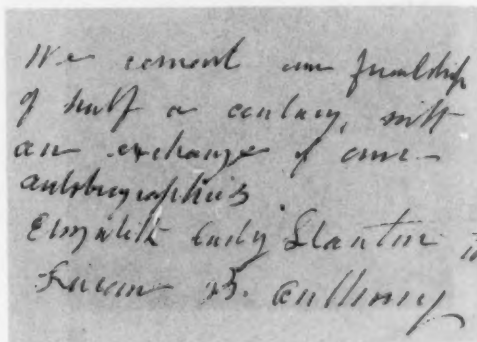 We cement our friendship
of half a century, with
an exchange of our
autobiographies.
Elizabeth Cady Stanton to
Susan B. Anthony